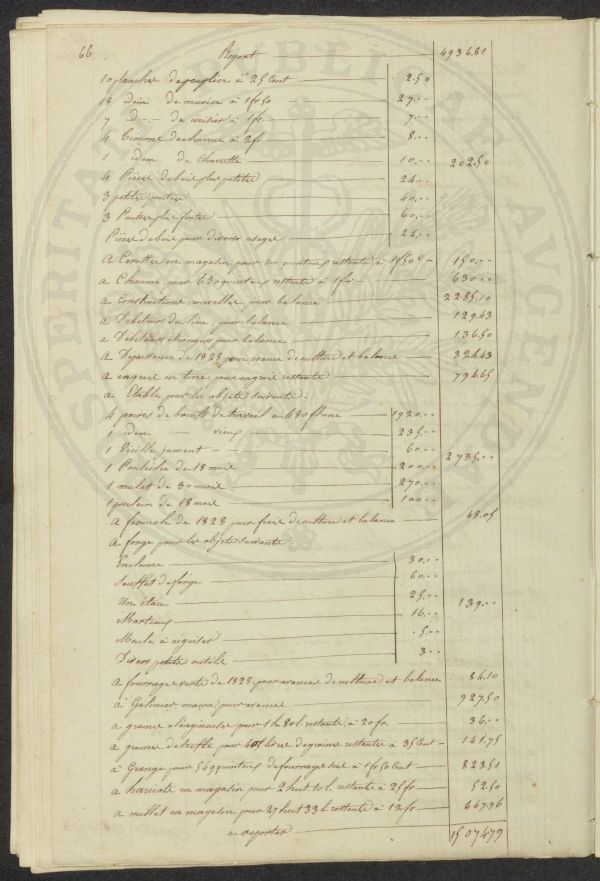 66 Report 4936.81
10 planches de peuplier à 25 Cent 2.50
18 idem de murier à 1f50 27..
7 id -- de cerisier à 1fr. 7..
4 de charrue à 2fr 8..
1 idem de Charette 10.. 202.50
4 Pièces de bois plus petites 24..
3 petites poutres 40..
3 Poutres plus fortes 60..
Pièces de bois pour divers usages 24..
a Carottes en magasin pour 100 quintaux restante à 1f50c 150..
a Chaume pour 630 quintaux restante à 1fr 630..
a Constructions nouvelles pour balance 2285.10
a Débiteurs du lieu pour balance 129.43
a Débiteurs étrangers pour balance 136.50
a Dépaissance de 1828 pour avance de culture et balance 324.43
a engrais en terre pour engrais restante 794.65
a Etable pour les objets suivants.
4 paires de boeufs de travail a 480f l'une 1920..
1 idem vieux 235..
1 Vieille jument 60..
1 Pouliche de 18 mois 200.. 2785..
1 mulet de 30 mois 270..
1 poulain de 18 mois 100..
a farouch de 1828 pour frais de culture et balance 48.05
a forge pour les objets suivants
Enclume 30..
Soufflet de forge 60..
Un étau 25.. 139..
Marteaux 16..
Meule à aiguiser 5..
Divers petits outils 3..
a fourrages verts de 1828, pour avances de culture et balance 84.10
à Galinier, maçon pour avances 927.50
a graines oléagineuses pour 1h 80l restante, à 20fr. 36..
a graines de trèfle pour 401 livres de graines restante à 35 Cent 141.75
à Grange pour 549 quintaux de fourrages secs à 1f50 Cent 823.51
a haricots en magasin pour 2 hect 10 l. restante à 25fr 52.50
a millet en magasin, pour 27 hect 33 l restante à 12fr 447.96
a reporter 15074.79